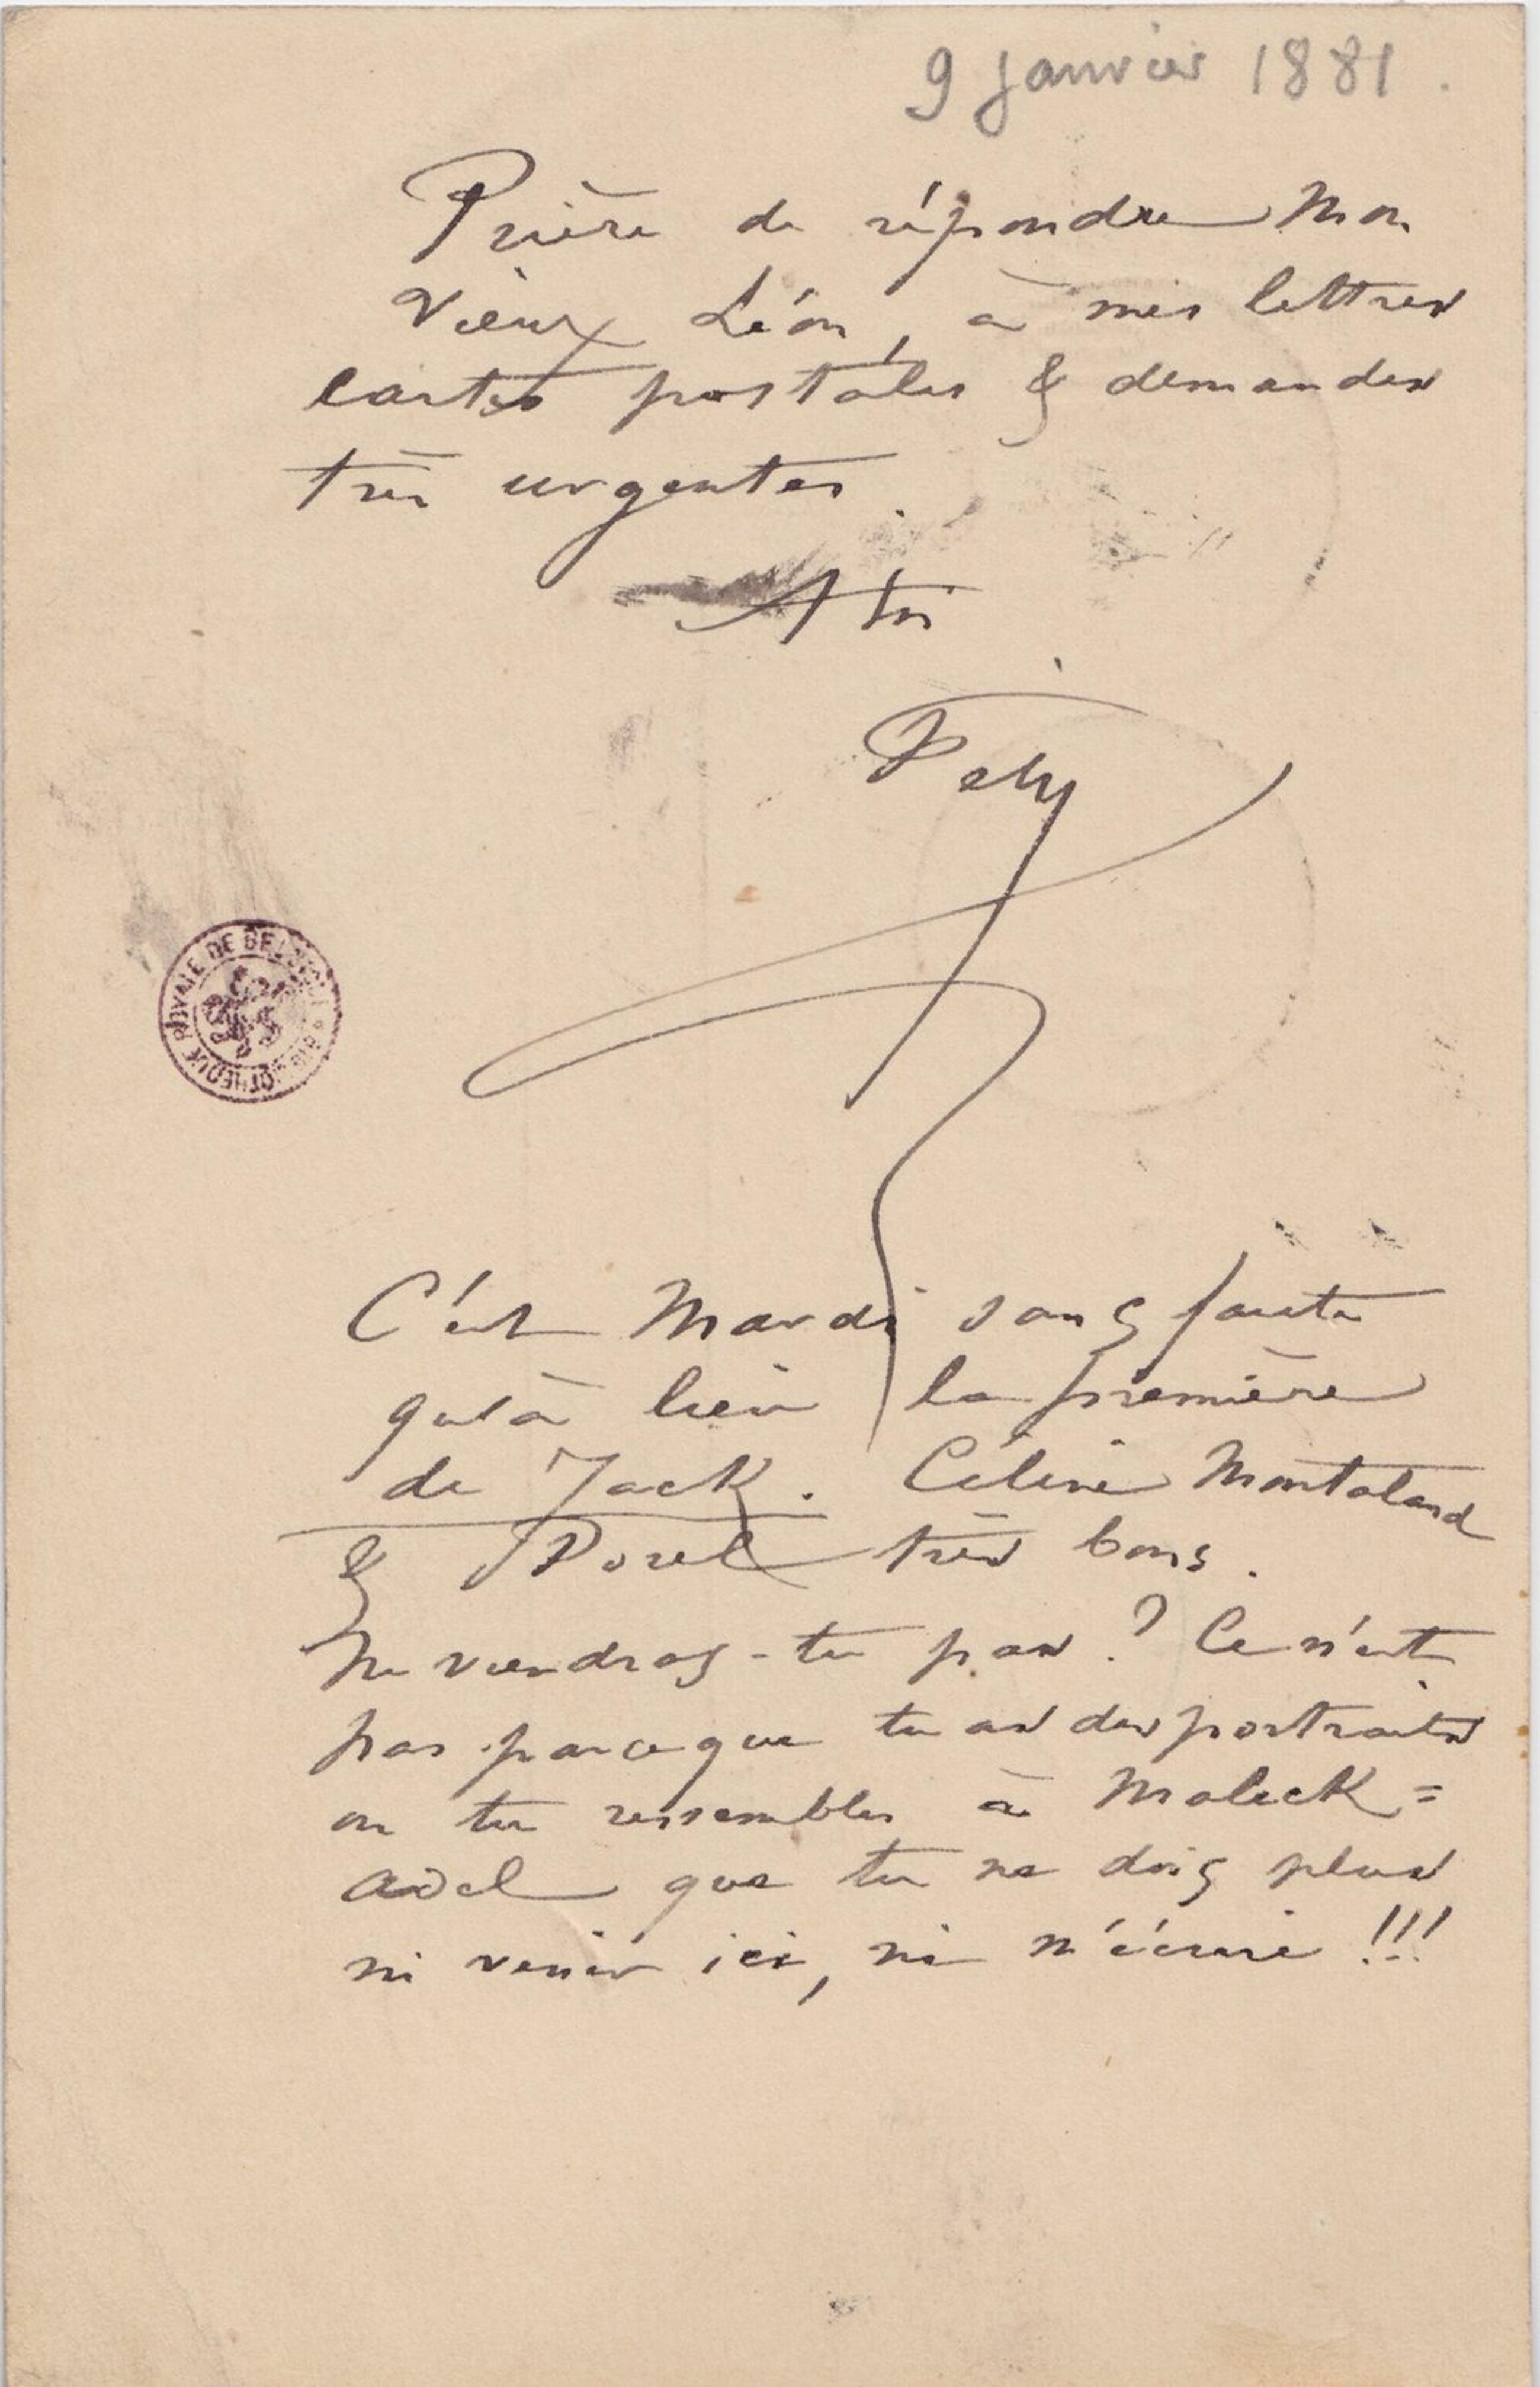 9 janvier 1881.
Prière de répondre Mon
vieux Léon, à mes lettres
cartes postales & demandes
très urgentes.
A toi
Fely
BIBLIOTHÈQUE ROYALE DE BELGIQUE
C'est Mardi sans faute
qu'à lieu la première
de Jack. Céline Montaland
& Porel très bons.
Ne viendras-tu pas? Ce n'est
pas parceque tu as des portraits
ou tu ressembles à Maleck=
adel que tu ne dois plus
ni venir ici, ni m'écrire!!!